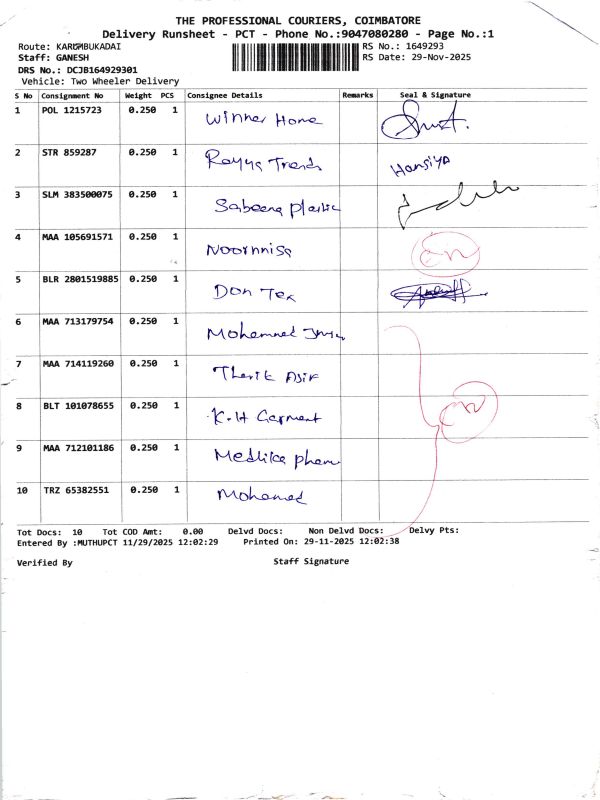 THE PROFESSIONAL COURIERS, COIMBATORE
Delivery Runsheet - PCT - Phone No.:9047080280 - Page No.:1
Route: KARUMBUKADAI RS No.: 1649293
Staff: GANESH RS Date: 29-Nov-2025
DRS No.: DCJB164929301
Vehicle: Two Wheeler Delivery
S No Consignment No Weight PCS Consignee Details Remarks Seal & Signature
1 POL 1215723 0.250 1 Winner Home
2 STR 859287 0.250 1 Rayya Trends Hansiya
3 SLM 383500075 0.250 1 Sabeena Plastic
4 MAA 105691571 0.250 1 Noornnisa
5 BLR 2801519885 0.250 1 Don Tex
6 MAA 713179754 0.250 1 Mohammed
7 MAA 714119260 0.250 1 Tharik Asif
8 BLT 101078655 0.250 1 K.H Garment
9 MAA 712101186 0.250 1 Medlike pham
10 TRZ 65382551 0.250 1 Mohamed
Tot Docs: 10 Tot COD Amt: 0.00 Delvd Docs: Non Delvd Docs: Delvy Pts:
Entered By :MUTHUPCT 11/29/2025 12:02:29 Printed On: 29-11-2025 12:02:38
Verified By Staff Signature